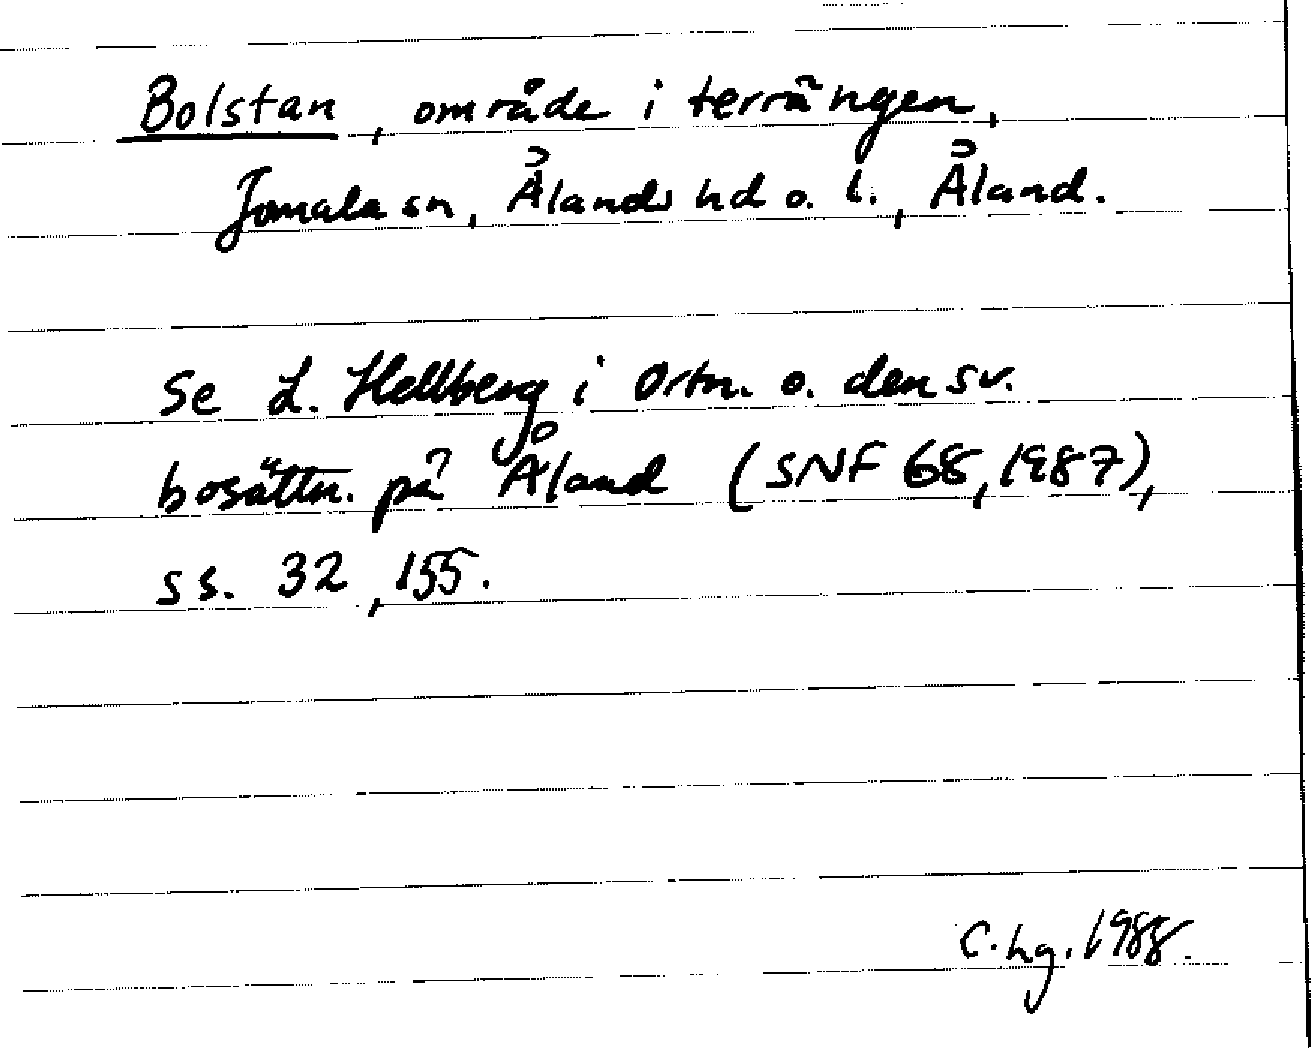 Bolstan, område i terrängen,
Jomala sn, Ålands hd o. l., Åland.
Se L. Hellberg i Ortn. o. den sv.
bosättn. på Åland (SNF 68, 1987),
ss. 32, 155.
C. hg. 1988.